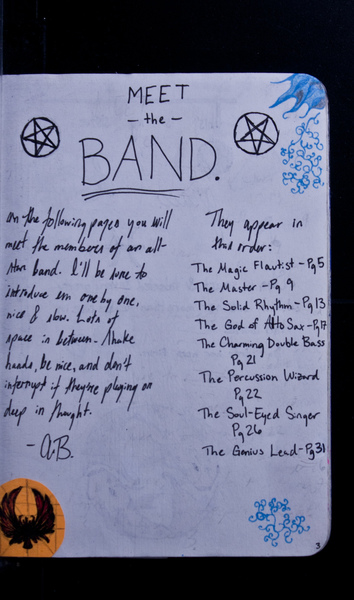 MEET
- the -
BAND.
On the following pages you will
meet the members of an all-
star band. I'll be sure to
introduce em one by one,
nice & slow. Lots of
space in between. Shake
hands, be nice, and don't
interrupt if they're playing or
deep in thought.
- A.B.
They appear in
this order:
The Magic Flautist - Pg 5
The Master - Pg 9
The Solid Rhythm - Pg 13
The God of Alto Sax - Pg 17
The Charming Double Bass
Pg 21
The Percussion Wizard
Pg 22
The Soul-Eyed Singer
Pg 26
The Genius Lead - Pg 31
3